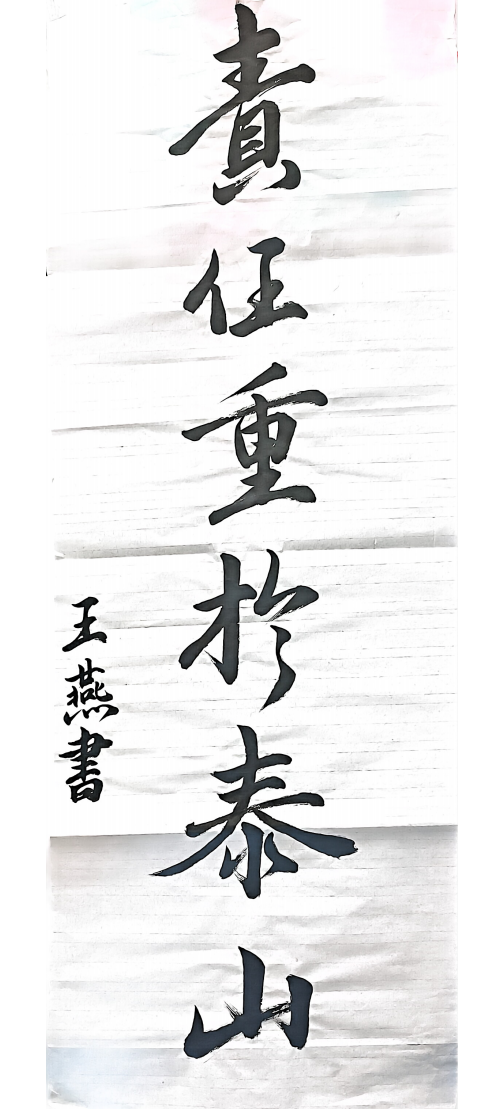 責任重於泰山
王燕書